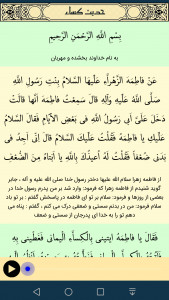 حدیث کساء
بِسْمِ اللَّهِ الرَّحْمنِ الرَّحِيمِ
به نام خداوند بخشنده و مهربان
عَنْ فاطِمَةَ الزَّهْراءِ عَلَيْهَا السَّلامُ بِنْتِ رَسُولِ اللَّهِ
صَلَّى اللَّهُ عَلَيْهِ وَآلِهِ قالَ سَمِعْتُ فاطِمَةَ أَنَّها قالَتْ
دَخَلَ عَلَيَّ أَبِي رَسُولُ اللَّهِ فِي بَعْضِ الْأَيَّامِ فَقالَ السَّلامُ
عَلَيْكِ يا فاطِمَةُ فَقُلْتُ عَلَيْكَ السَّلامُ قالَ إِنِّي أَجِدُ فِي
بَدَنِي ضَعْفاً فَقُلْتُ لَهُ أُعِيذُكَ بِاللَّهِ يا أَبَتاهُ مِنَ الضَّعْفِ
از فاطمه زهرا سلام الله علیها دختر رسول خدا صلی الله علیه و آله ، جابر
گوید شنیدم از فاطمه زهرا که فرمود: وارد شد بر من پدرم رسول خدا در
بعضی از روزها و فرمود: سلام بر تو ای فاطمه در پاسخش گفتم : بر تو باد
سلام فرمود: من در بدنم سستی و ضعفی درک می کنم ، گفتم : پناه می
دهم تو را به خدا ای پدرجان از سستی و ضعف
فَقالَ يا فاطِمَةُ ايتِينِي بِالْكِساءِ الْيَمانِي فَغَطِّينِي بِهِ